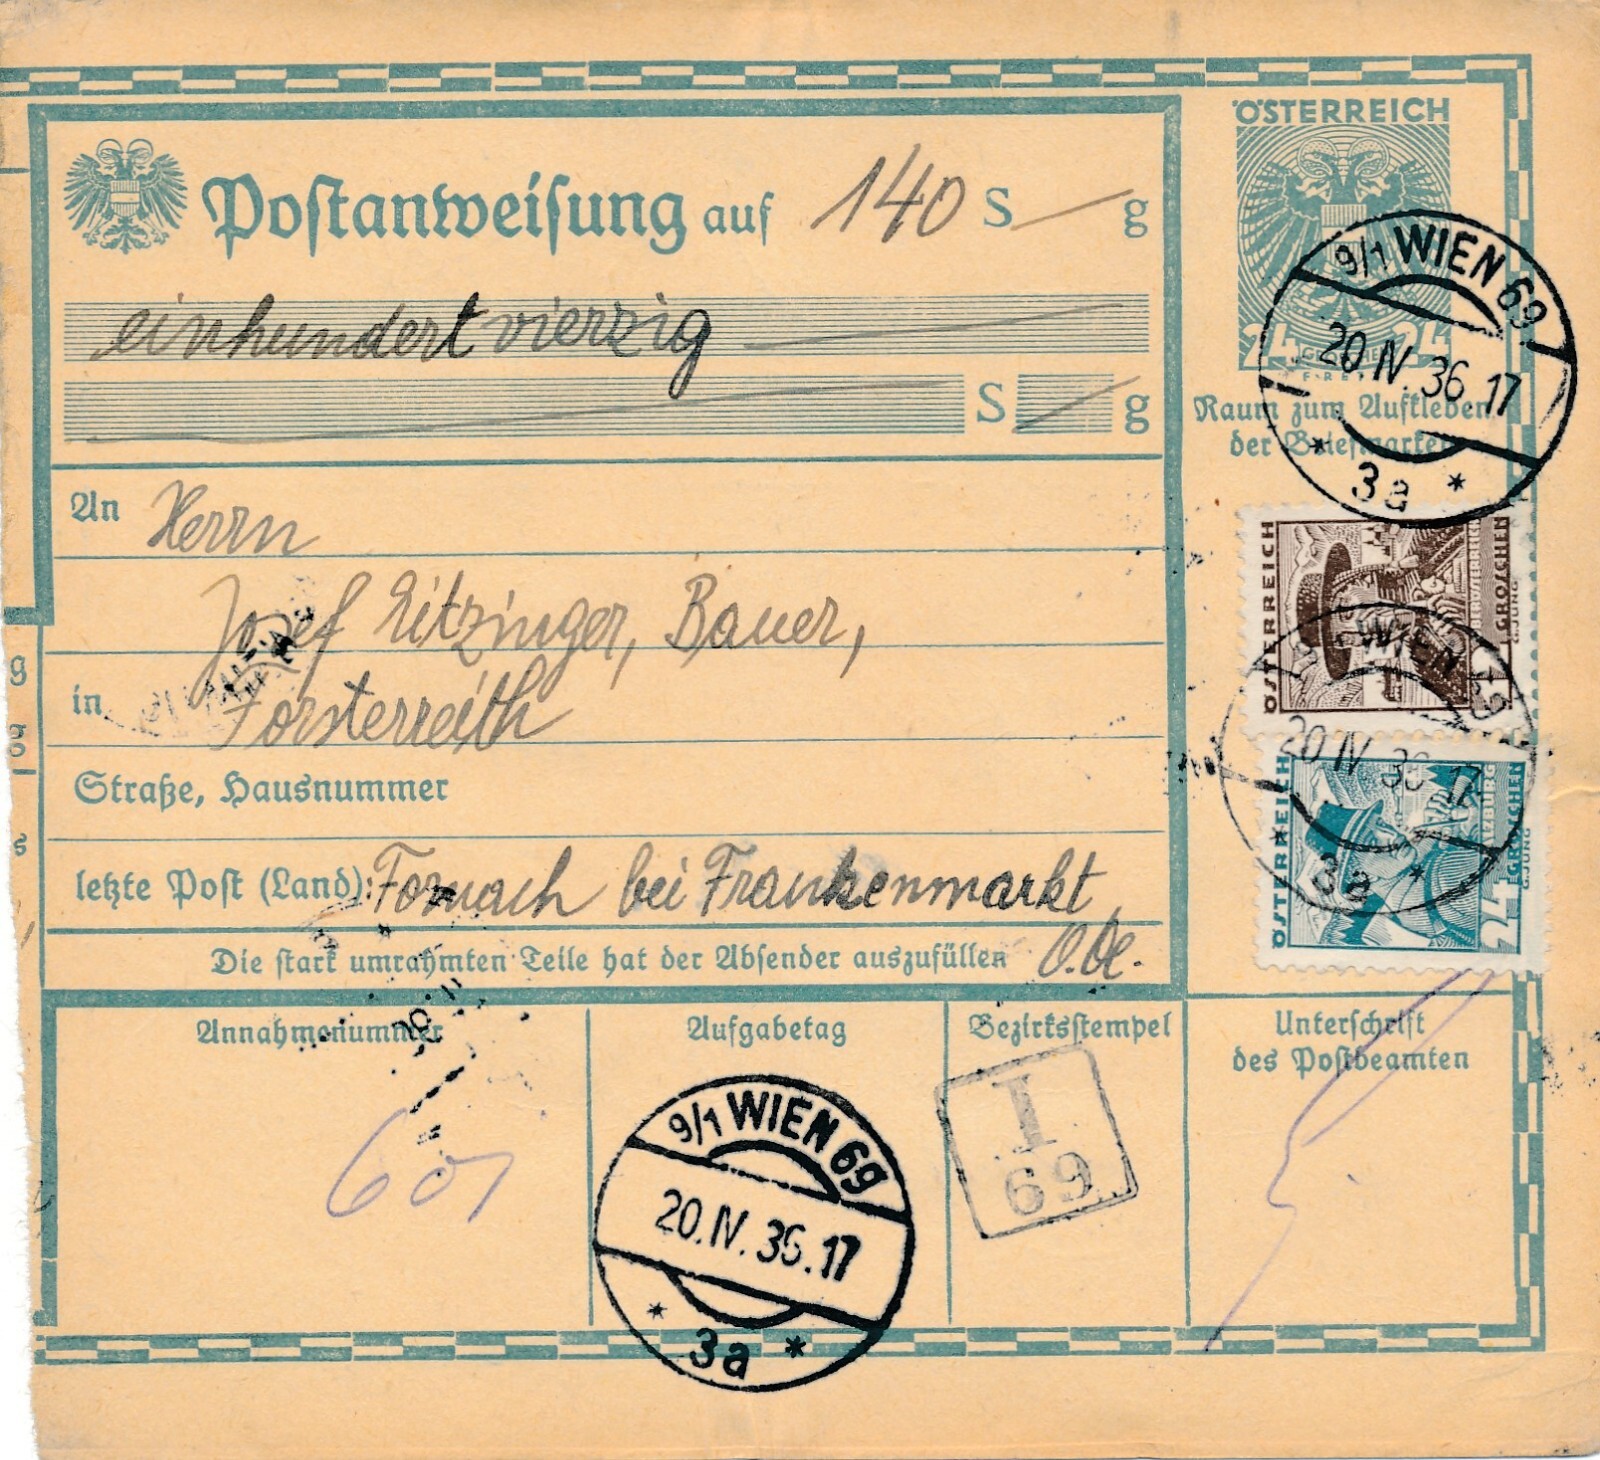 ÖSTERREICH
Postanweisung auf 140 S — g
24 24
GROSCHEN
einhundertvierzig
S — g
Raum zum Aufkleben
der Briefmarken
9/1 WIEN 69
20.IV.36 17
* 3a *
An Herrn
Josef Eitzinger, Bauer,
in Forsterreith
Straße, Hausnummer
letzte Post (Land): Fornach bei Frankenmarkt
O.Oe.
Die stark umrahmten Teile hat der Absender auszufüllen
ÖSTERREICH
1 GROSCHEN
G. JUNG
WIEN 69
20 IV 36 17
* 3a *
ÖSTERREICH
SALZBURG
24 GROSCHEN
G. JUNG
Annahmenummer
Aufgabetag
Bezirksstempel
Unterschrift
des Postbeamten
601
9/1 WIEN 69
20.IV.36.17
* 3a *
I
69
g
g
s